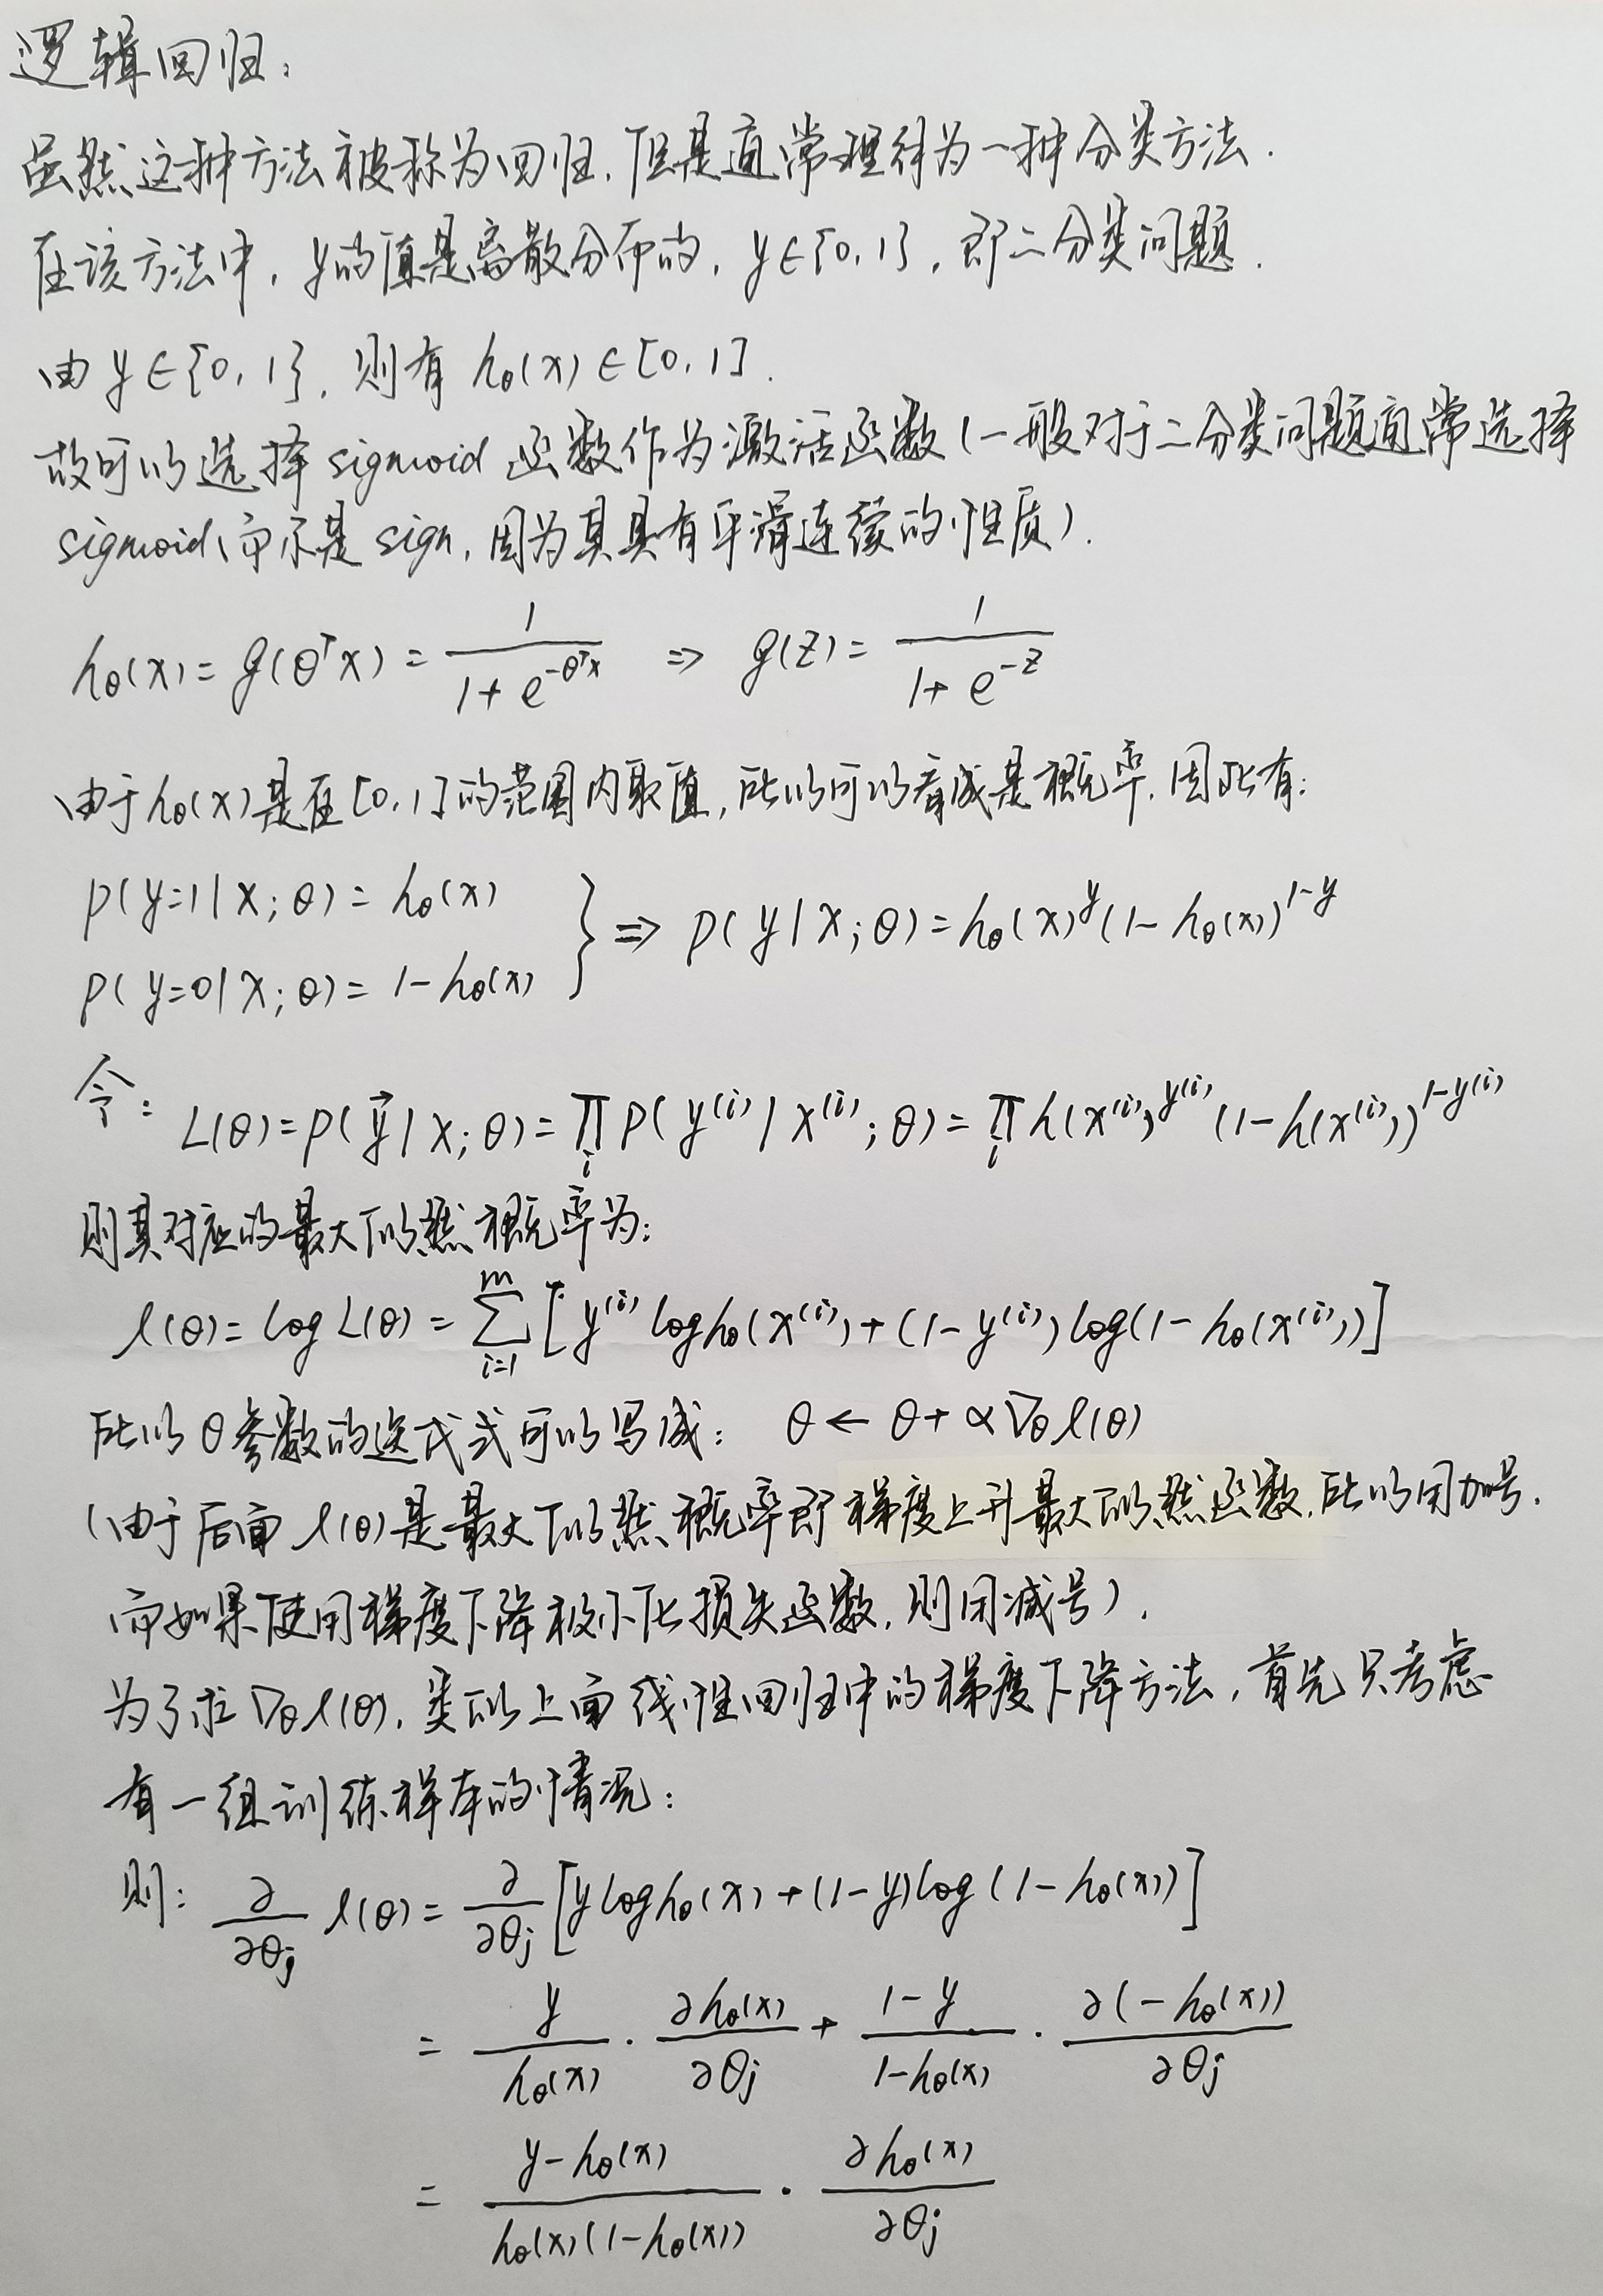 逻辑回归:
虽然这种方法被称为回归,但是通常理解为一种分类方法.
在该方法中,y的值是离散分布的,y∈{0,1},即二分类问题.
由 y∈{0,1},则有 hθ(x)∈[0,1].
故可以选择 sigmoid 函数作为激活函数(一般对于二分类问题通常选择
sigmoid,而不是 sign,因为其具有平滑连续的性质).
hθ(x) = g(θᵀx) = 1/(1+e^(-θᵀx)) ⇒ g(z) = 1/(1+e^(-z))
由于hθ(x)是在[0,1]的范围内取值,所以可以看成是概率,因此有:
P(y=1|x;θ) = hθ(x)
P(y=0|x;θ) = 1-hθ(x) } ⇒ P(y|x;θ) = hθ(x)^y (1-hθ(x))^(1-y)
令: L(θ) = P(y⃗|x;θ) = ∏_i P(y^(i)|x^(i);θ) = ∏_i h(x^(i))^(y^(i)) (1-h(x^(i)))^(1-y^(i))
则其对应的最大似然概率为:
l(θ) = log L(θ) = ∑_{i=1}^{m} [y^(i) log hθ(x^(i)) + (1-y^(i)) log(1-hθ(x^(i)))]
所以θ参数的迭代式可以写成: θ ← θ+α∇θ l(θ)
(由于后面 l(θ)是最大似然概率即梯度上升最大似然函数,所以用加号.
而如果使用梯度下降极小化损失函数,则用减号).
为了求∇θ l(θ),类似上面线性回归中的梯度下降方法,首先只考虑
有一组训练样本的情况:
则: ∂/∂θj l(θ) = ∂/∂θj [y log hθ(x) + (1-y) log(1-hθ(x))]
= y/hθ(x) · ∂hθ(x)/∂θj + (1-y)/(1-hθ(x)) · ∂(-hθ(x))/∂θj
= (y-hθ(x))/(hθ(x)(1-hθ(x))) · ∂hθ(x)/∂θj